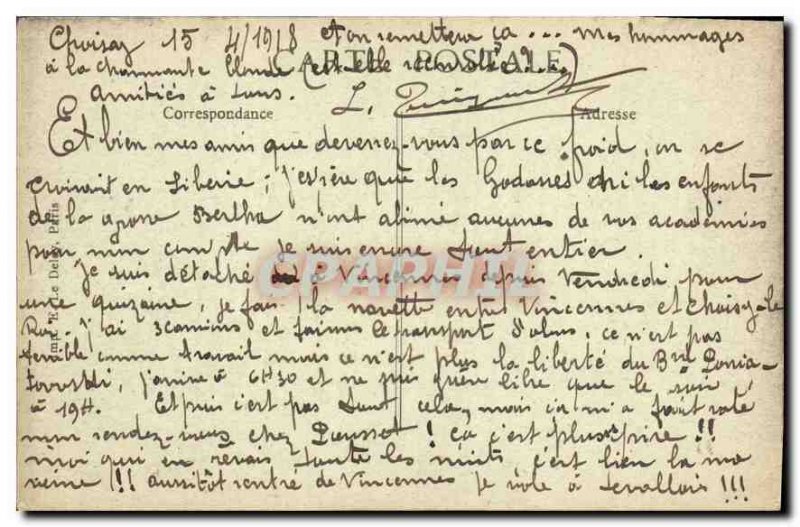 Choisy 15 4/1918 et on remettra ça ... mes hommages
CARTE POSTALE
à la charmante Claude (est-elle remontée?...)
Amitiés à tous. L.
Correspondance
Adresse
Et bien mes amis que devenez-vous par ce froid, on se
croirait en Siberie ; j'espère que les Godasses ni les enfants
de la grosse Bertha n'ont abimé aucunes de vos académies
pour mon compte je suis encore tout entier.
je suis détaché à Vincennes depuis Vendredi pour
une quizaine, je fais la navette entre Vincennes et Choisy-le
Roi. J'ai 3 camions et faisons le transport d'obus, ce n'est pas
terrible comme travail mais ce n'est plus la liberté du Bd Ponia-
towski, j'arrive à 6H30 et ne suis guère libre que le soir
à 19H. Et puis c'est pas tout cela, mais ça m'a fait raté
mon rendez-vous chez Pousset! ça c'est plus pire!!
moi qui en revais toute les nuits c'est bien la me
veine!!! aussitôt rentré de Vincennes je vole à Levallois!!!
Imp. E. Le Deley, Paris
CPAPHIL